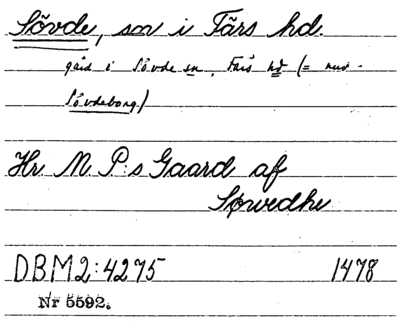 Sövde, sn i Färs hd.
gård i Sövde sn, Färs hd (= nuv.
Sövdeborg)
Hr. M. P:s Gaard af
Sørwedhe
DBM2:4275 1478
Nr 5592.